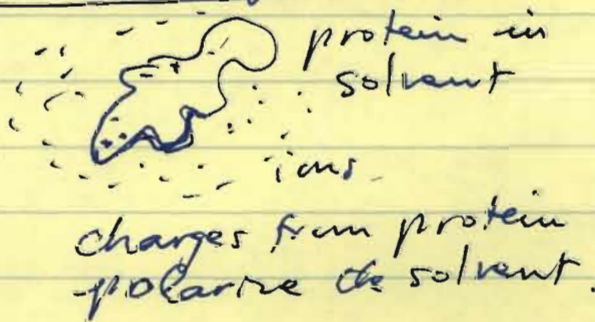 protein in
solvent
ions
charges from protein
polarize the solvent.